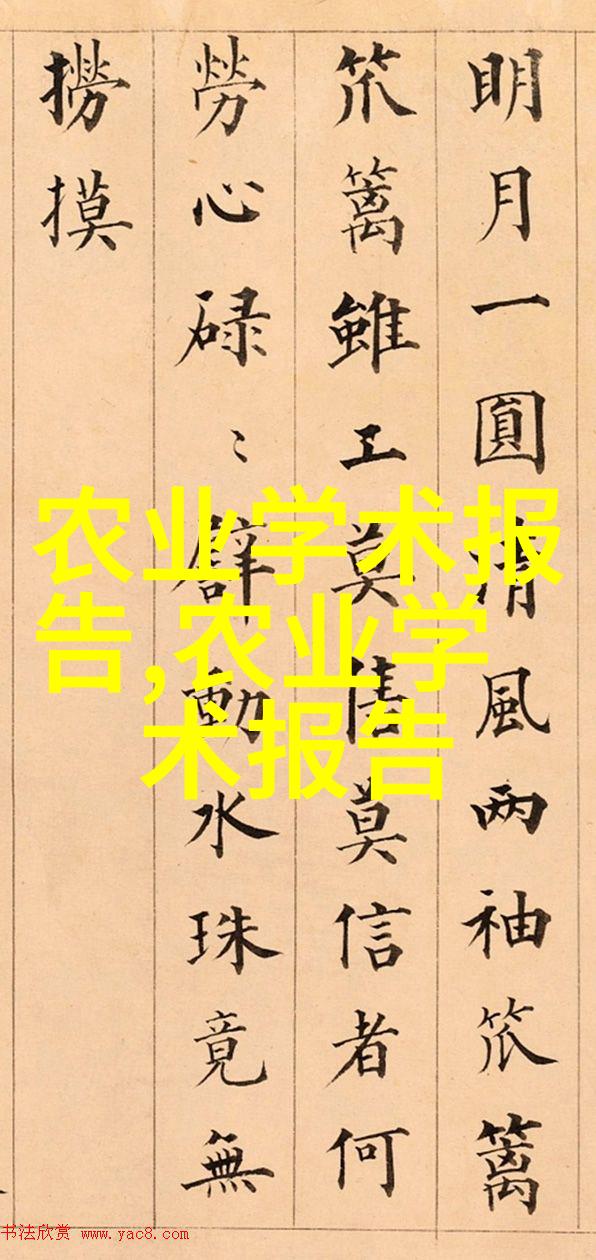 明月一圓清風两袖笊篱
笊篱雖工莫莫信者何
勞心碌〻動水珠竟無
撈摸
农业学术报
告,农业学
术报告
书法欣赏 www.yac8.com